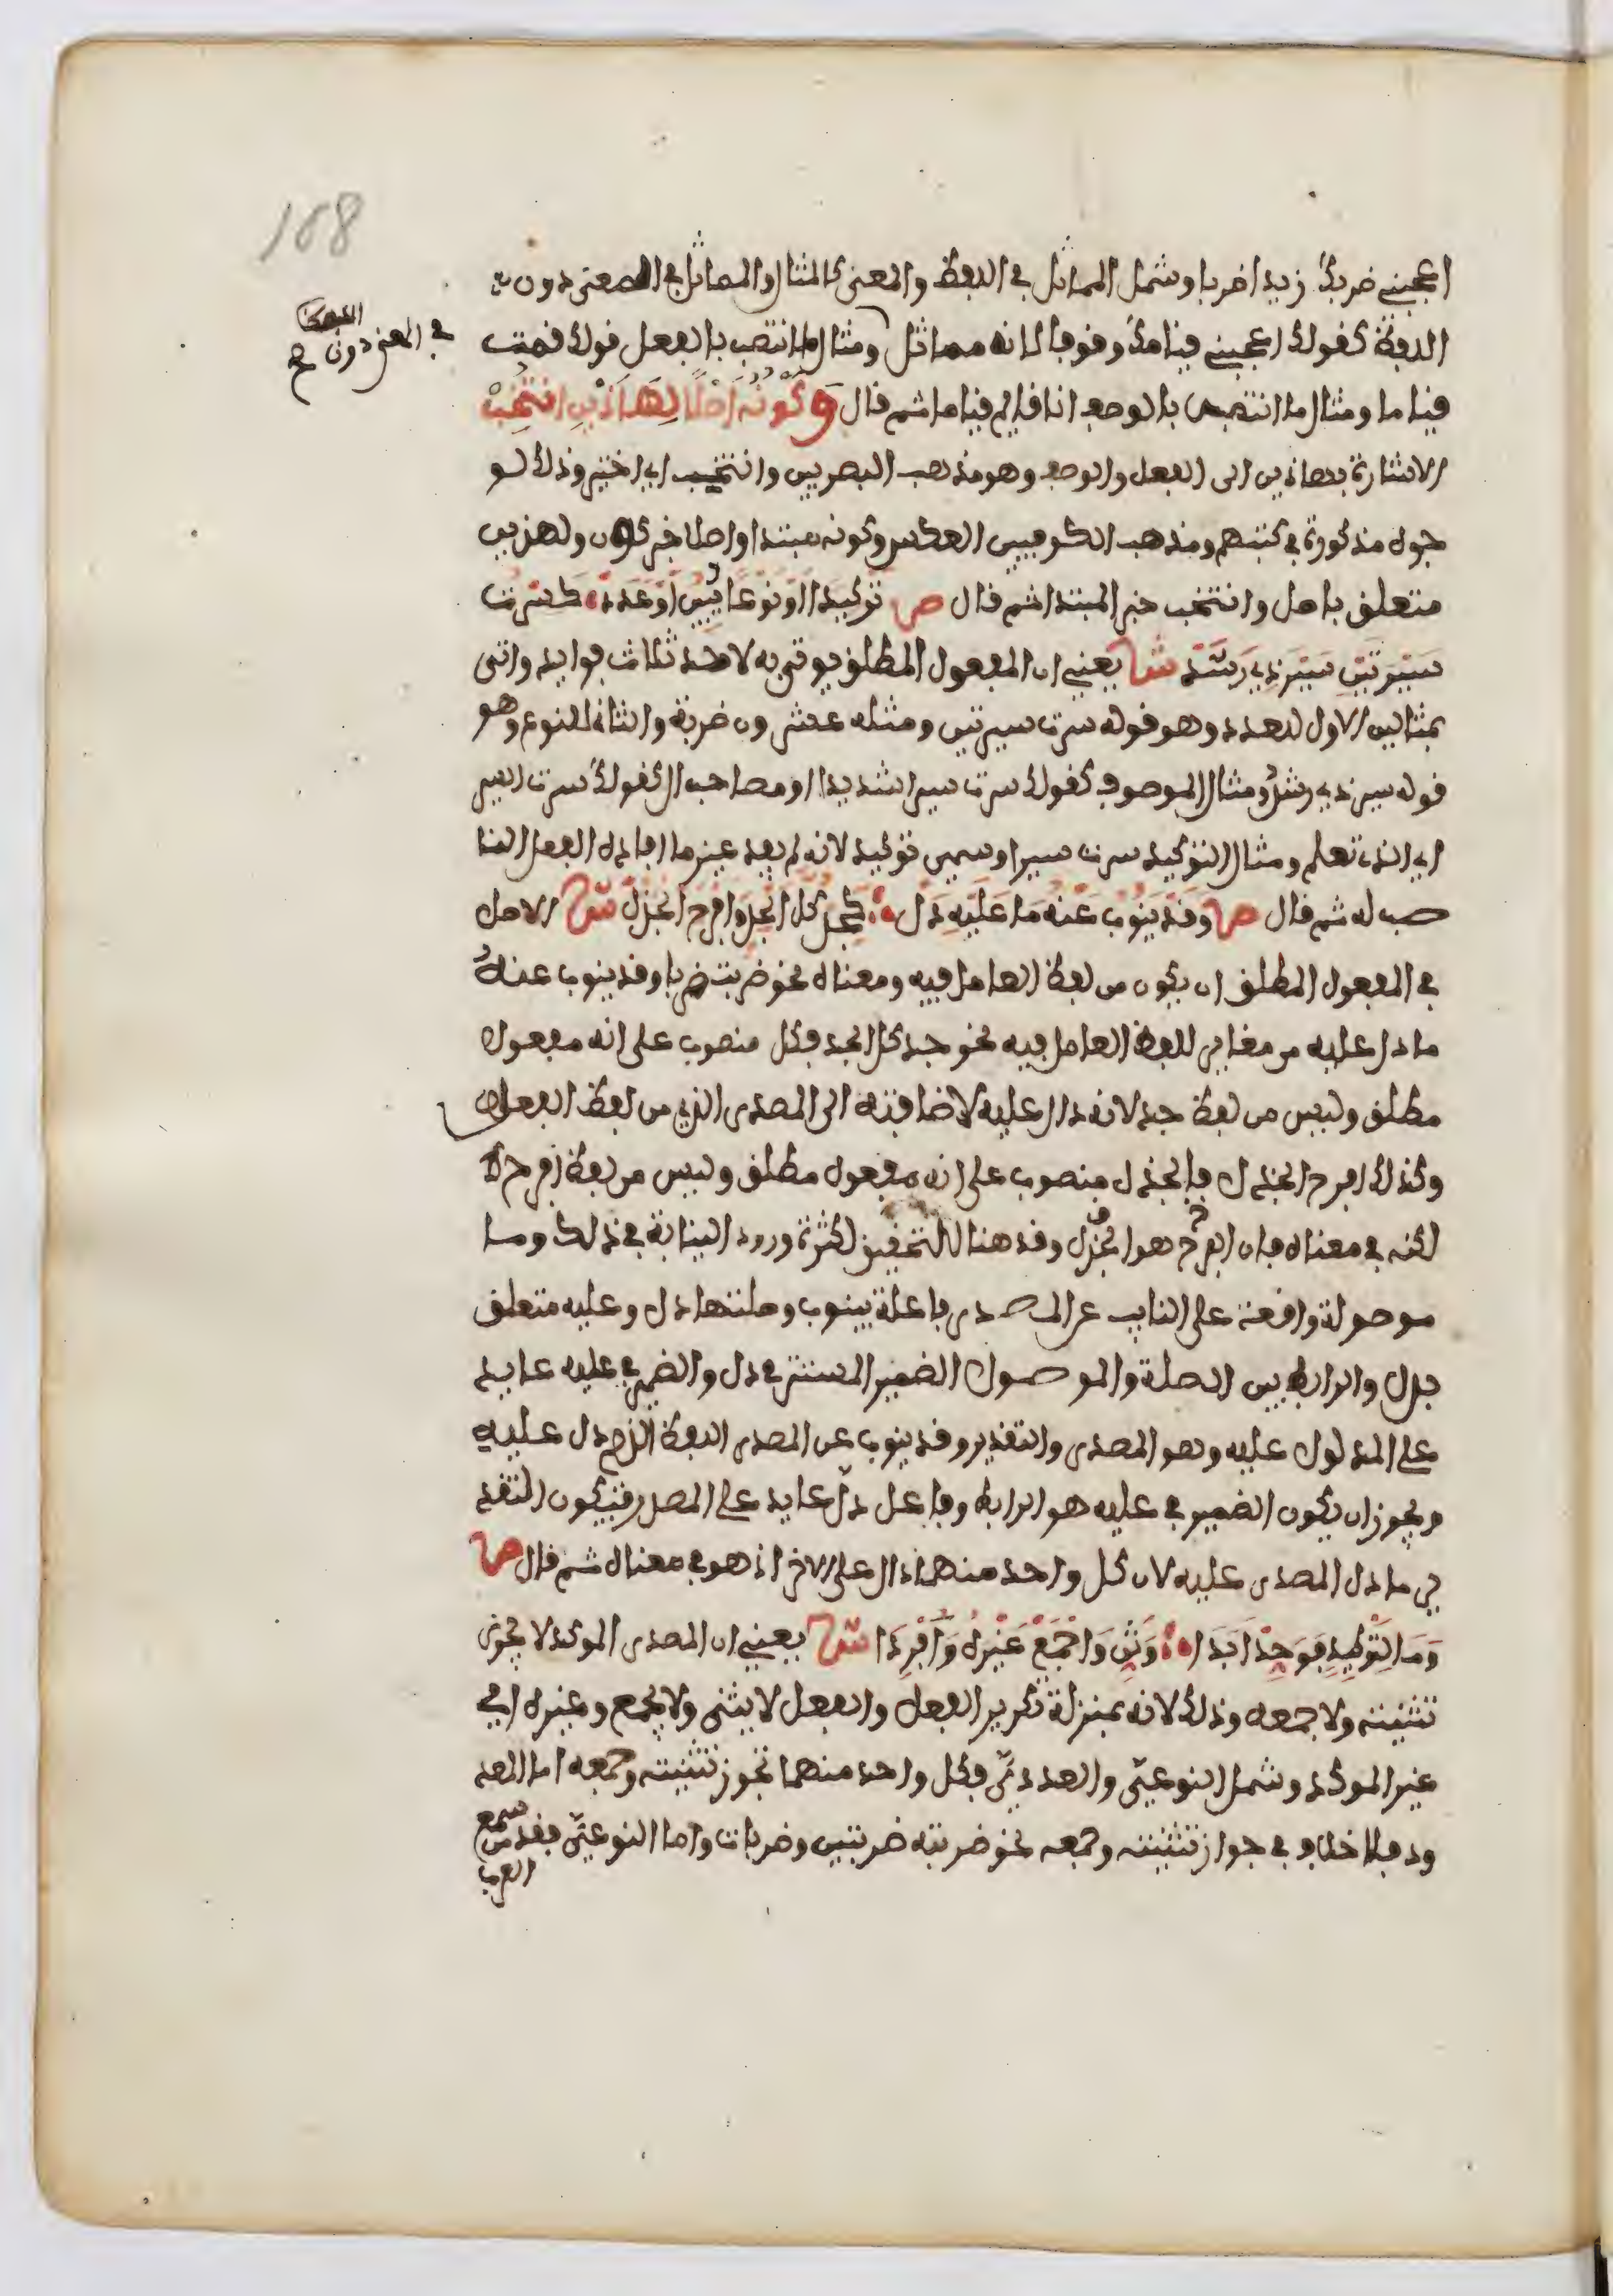 168
اعجبني ضربك زيدا ضربا وشمل المماثل في اللفظ والمعنى كالمثال والمماثل في المعنى دون
اللفظ كقولك اعجبني قيامك وقوفا لانه مماثل ومثال ما انتصب بالفعل قولك قمت
في المعنى دون اللفظ صح
قياما ومثال ما انتصب بالوصف انا قايم قياما ثم قال وَكَوْنُهُ أَصْلًا لِهَذَيْنِ انْتُخِبْ
الاشارة بهاذين الى الفعل والوصف وهو مذهب البصريين وانتخب اي اختير وذلك لو
جوه مذكورة في كتبهم ومذهب الكوفيين العكس وكونه مبتدا واصلا خبر كون ولهذين
متعلق باصل وانتخب خبر المبتدا ثم قال ص تَوْكِيدًا اوْ نَوْعًا يُبِينُ أَوْ عَدَدْ كَسِرْتُ
سَيْرَتَيْنِ سَيْرَ ذِي رَشَدْ ش يعني ان المفعول المطلق يوتى به لاحد ثلاث فوايد واتى
بمثالين الاول للعدد وهو قوله سرت سيرتين ومثله عشرون ضربة والثاني للنوع وهو
قوله سير ذي رشد ومثال الموصوف كقولك سرت سيرا شديدا او مصاحب ال كقولك سرت السير
اي الذي تعلم ومثال التوكيد سرت سيرا وسمي توكيد لانه لم يفد غير ما افاده الفعل النا
صب له ثم قال ص وَقَدْ يَنُوبُ عَنْهُ مَا عَلَيْهِ دَلّ كَجِدَّ كُلَّ الْجِدِّ وَافْرَحِ الْجَذَلْ ش الاصل
في المفعول المطلق ان يكون من لفظ العامل فيه ومعناه نحو ضربت ضربا وقد ينوب عنه
ما دل عليه من مغاير للفظ العامل فيه نحو جد كل الجد فكل منصوب على انه مفعول
مطلق وليس من لفظ جد لانه دال عليه لاضافته الى المصدر الذي من لفظ الفعل
وكذلك افرح الجذل فالجذل منصوب على انه مفعول مطلق وليس من لفظ افرح لا
كنه في معناه فان الفرح هو الجذل وقد هنا للتحقيق لكثرة ورود النيابة في ذلك وما
موصولة واقعة على النايب عن المصدر فاعلة بينوب وصلتها دل وعليه متعلق
بدل والرابط بين الصلة والموصول الضمير المستتر في دل والضمير في عليه عايد
على المدلول عليه وهو المصدر والتقدير وقد ينوب عن المصدر اللفظ الذي دل عليه
ويجوز ان يكون الضمير في عليه هو الرابط وفاعل دل عايد على المصدر فيكون التقد
ير ما دل المصدر عليه لان كل واحد منهما دال على الاخر اذ هو في معناه ثم قال ص
وَمَا لِتَوْكِيدٍ فَوَحِّدْ أَبَدَا وَثَنِّ وَاجْمَعْ غَيْرَهُ وَأَفْرِدَا ش يعني ان المصدر الموكد لا يجوز
تثنيته ولا جمعه وذلك لانه بمنزلة تكرير الفعل والفعل لا يثنى ولا يجمع وغيره اي
غير الموكد وشمل النوعيّ والعدديّ فكل واحد منهما تجوز تثنيته وجمعه اما المعد
ود فلا خلاف في جواز تثنيته وجمعه نحو ضربته ضربتين وضربات واما النوعيّ فقد سمع
من العرب